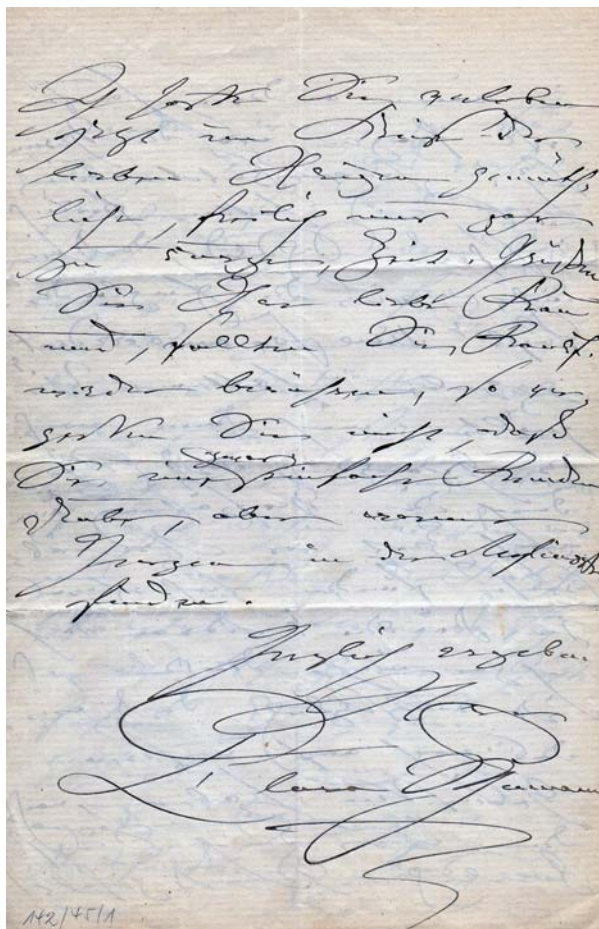 Ich hoffe Sie verleben
jetzt im Kreise der
lieben Ihrigen gemüth-
liche, freilich nur gar
zu kurze, Zeit. Grüßen
Sie Ihre liebe Frau
und, sollten Sie Frankf.
wieder berühren, so ver-
gessen Sie nicht, daß
zwar
Sie einfache
aber warme
Herzen in der Myliusstr.
finden.
Herzlich ergeben
Clara Schumann
142/45/1